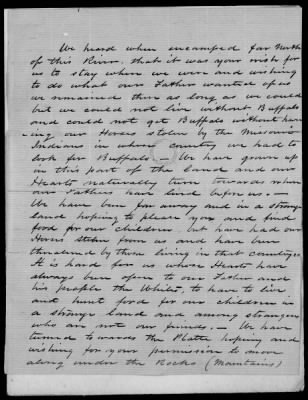 We heard when encamped far North
of this River, that it was your wish for
us to stay when we were and wishing
to do what our Father wanted of us
we remained there as long as we could
but we could not live without Buffalo
and could not get Buffalo without hav-
ing our Horses stolen by the Missouri
Indians in whose country we had to
look for Buffalo — We have grown up
in this part of the land and our
Hearts naturally turn towards where
our Fathers have lived before us.
We have been far away and in a strange
land hoping to please you and find
food for our children but have had our
Horses stolen from us and have been
threatened by those living in that country.
It is hard for us whose Hearts have
always been open to our Father and
his people the Whites, to have to live
and hunt food for our children in
a strange land and among strangers
who are not our friends. — We have
turned towards the Platte hoping and
wishing for your permission to move
along under the Rocks (Mountains)